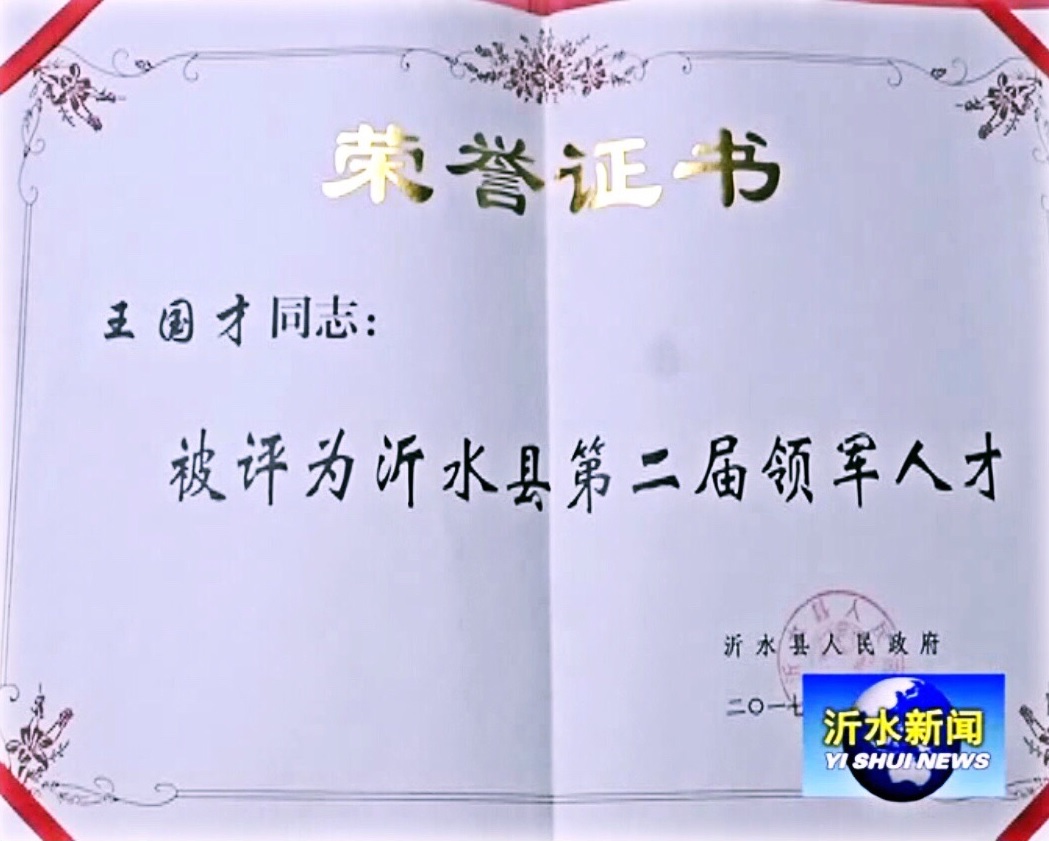 荣誉证书
王国才同志:
被评为沂水县第二届领军人才
沂水县人民政府
二〇一七
沂水新闻
YI SHUI NEWS